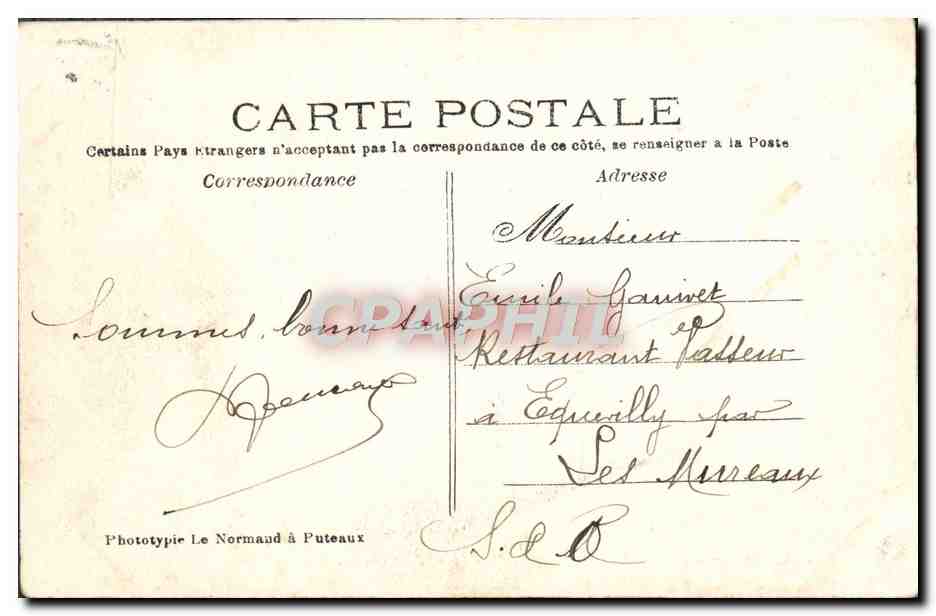 CARTE POSTALE
Certains Pays Etrangers n'acceptant pas la correspondance de ce côté, se renseigner a la Poste
Correspondance
Adresse
Sommes, bonne santé
Monsieur
Emile Ganivet
Restaurant Vasseur
à Equevilly par
Les Mureaux
S. d O
Phototypie Le Normand à Puteaux
CPAPHIL